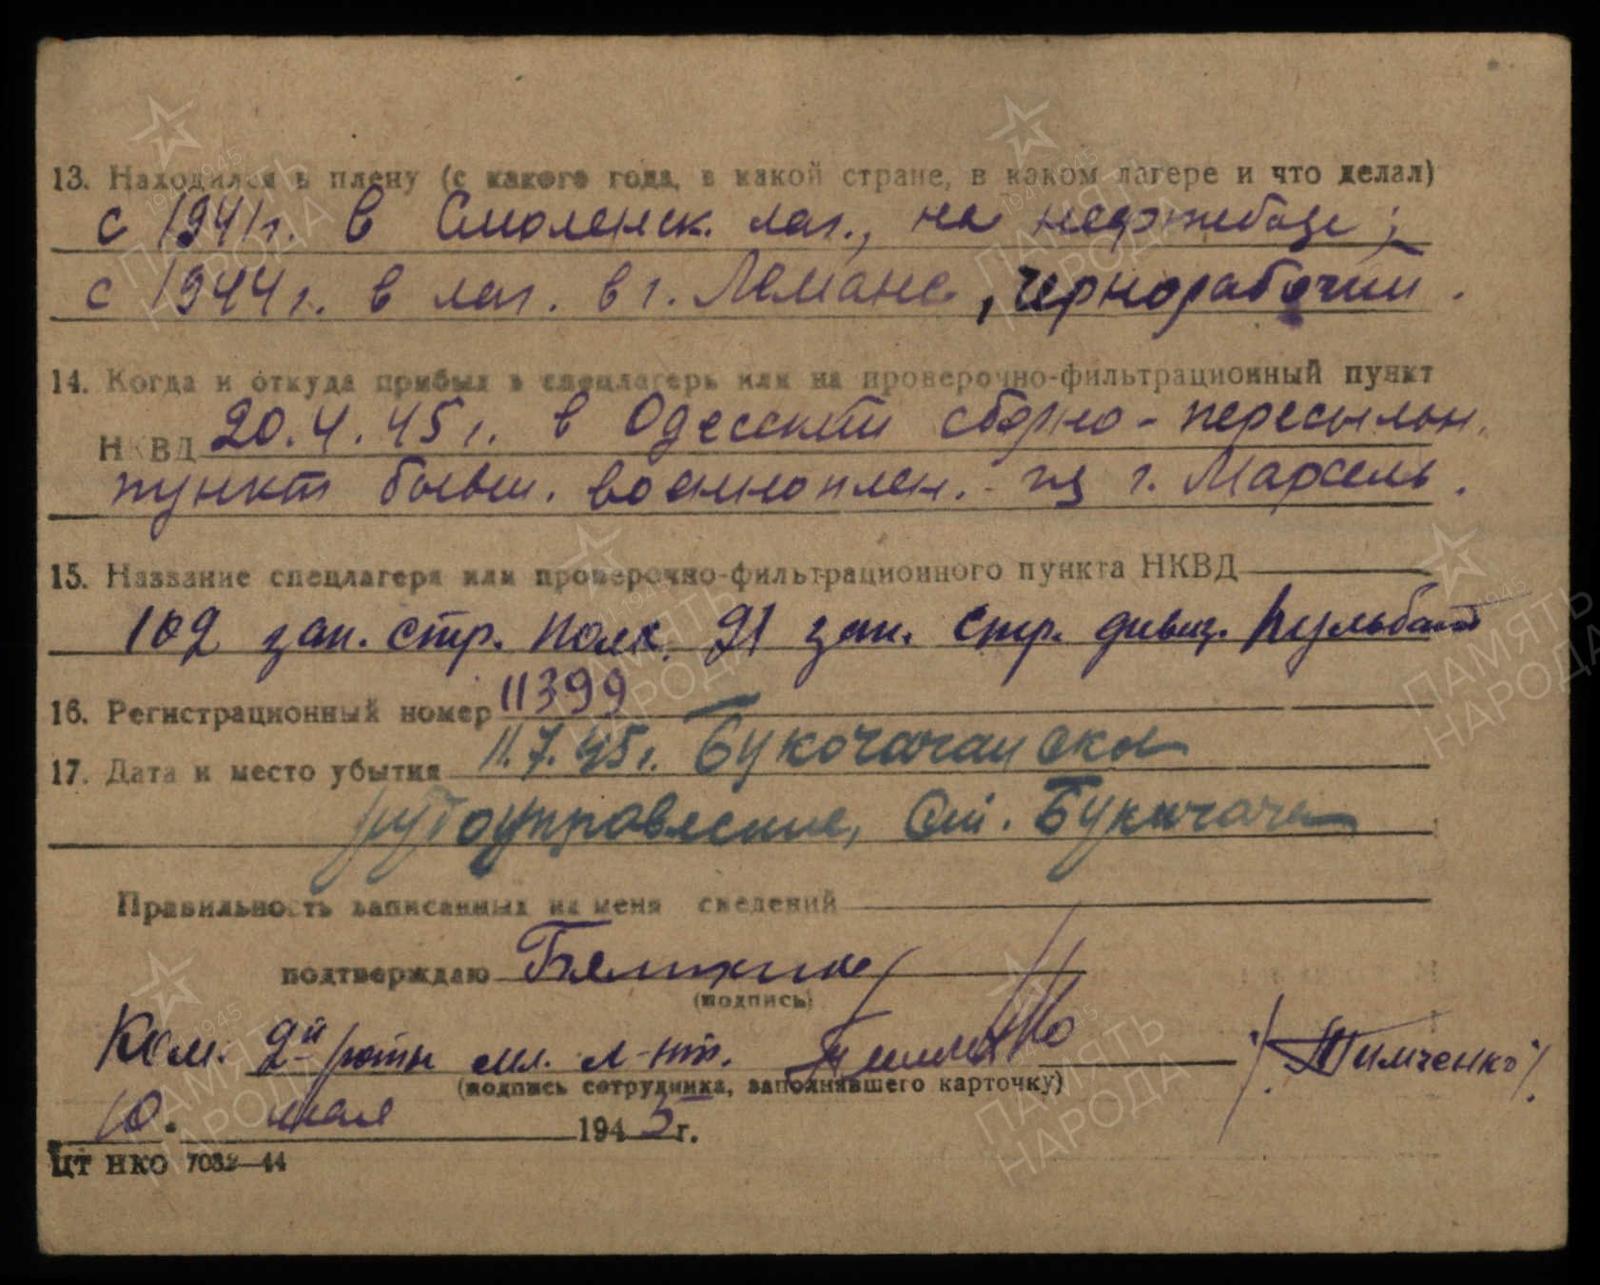 13. Находился в плену (с какого года, в какой стране, в каком лагере и что делал)
с 1941г. в Смоленск. лаг., на нефтебазе;
с 1944г. в лаг. в г. Лемане, чернорабочий.
14. Когда и откуда прибыл в спецлагерь или на проверочно-фильтрационный пункт
НКВД 20.4.45г. в Одесский сборно-пересыльн.
пункт бывш. военноплен. - из г. Марсель.
15. Название спецлагеря или проверочно-фильтрационного пункта НКВД
102 зап. стр. полк 21 зап. стр. дивиз.
16. Регистрационный номер 11399
17. Дата и место убытия 11.7.45г. Букочачинское
рудоуправление, ст. Букачача
Правильность записанных на меня сведений
подтверждаю
(подпись)
Ком. 2й роты мл. л-нт. Тимченко /Тимченко/.
(подпись сотрудника, заполнявшего карточку)
10. мая 1945 г.
ЦТ НКО 7032—44
ПАМЯТЬ НАРОДА
1941-1945